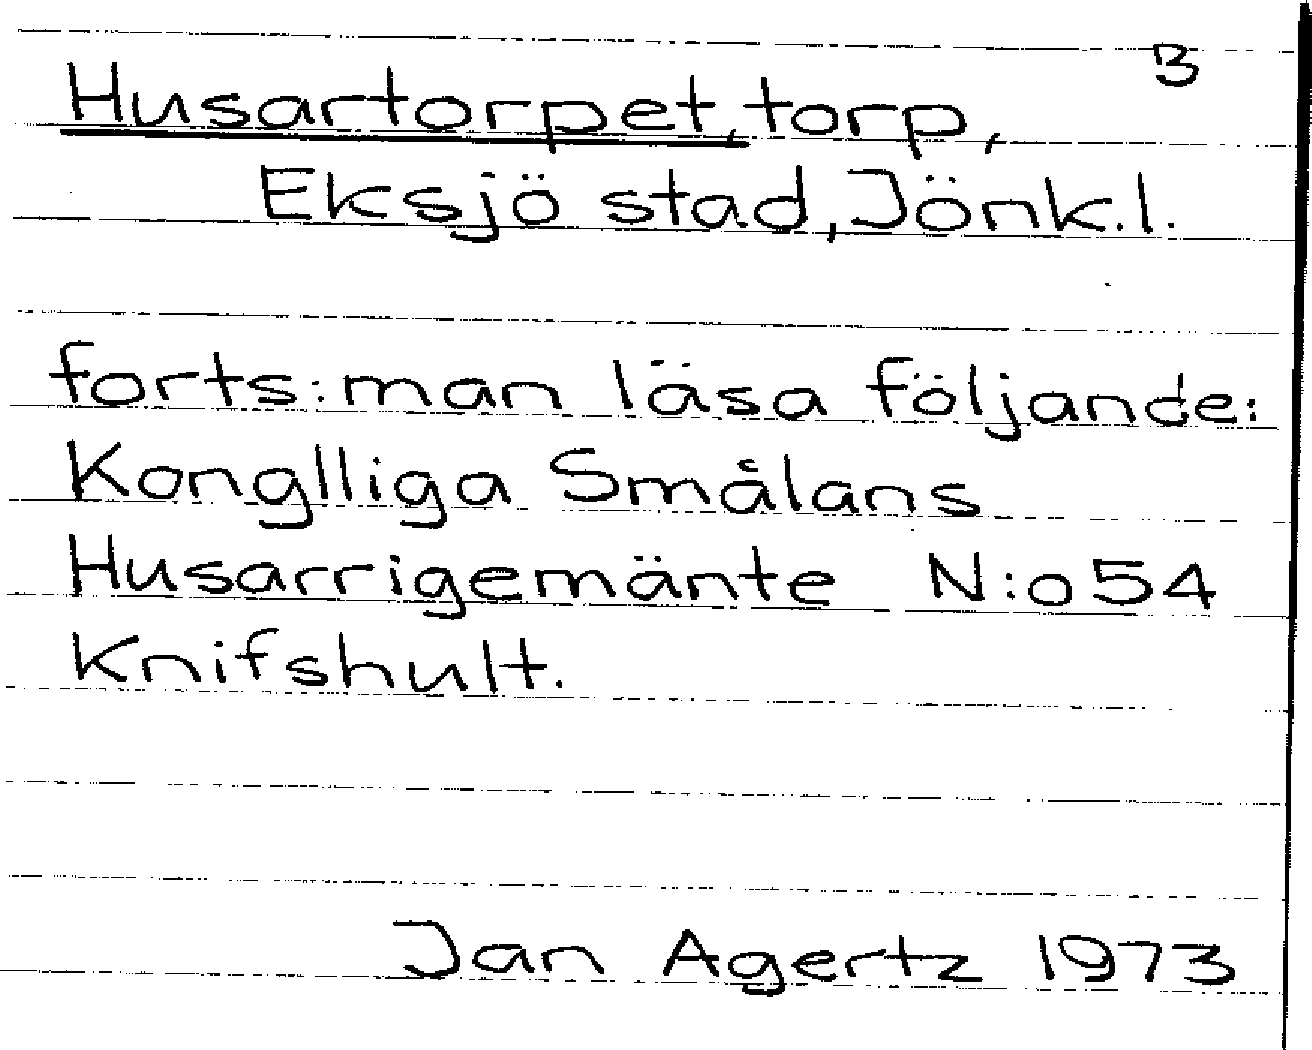 3
Husartorpet, torp,
Eksjö stad, Jönk.l.
forts: man läsa följande:
Konglliga Smålans
Husarrigemänte N:o 54
Knifshult.
Jan Agertz 1973